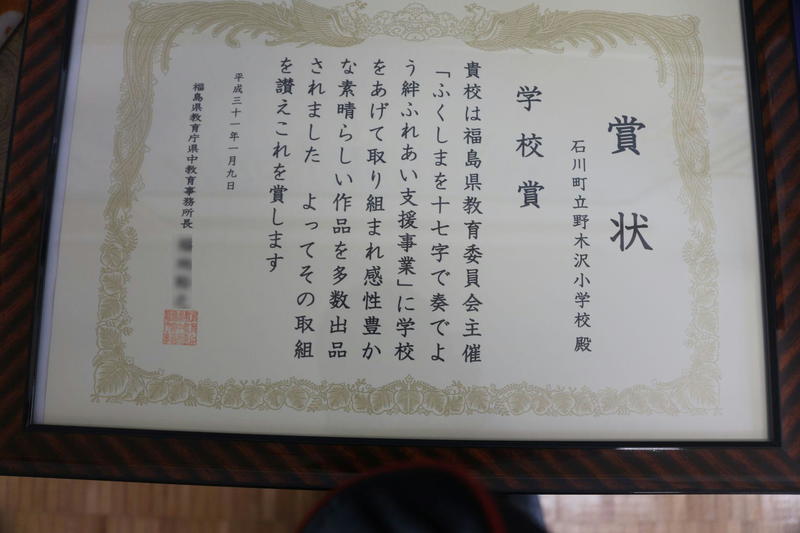 賞状
石川町立野木沢小学校 殿
学校賞
貴校は福島県教育委員会主催
「ふくしまを十七字で奏でよ
う絆ふれあい支援事業」に学校
をあげて取り組まれ感性豊か
な素晴らしい作品を多数出品
されました よってその取組
を讃えこれを賞します
平成三十一年一月九日
福島県教育庁県中教育事務所長